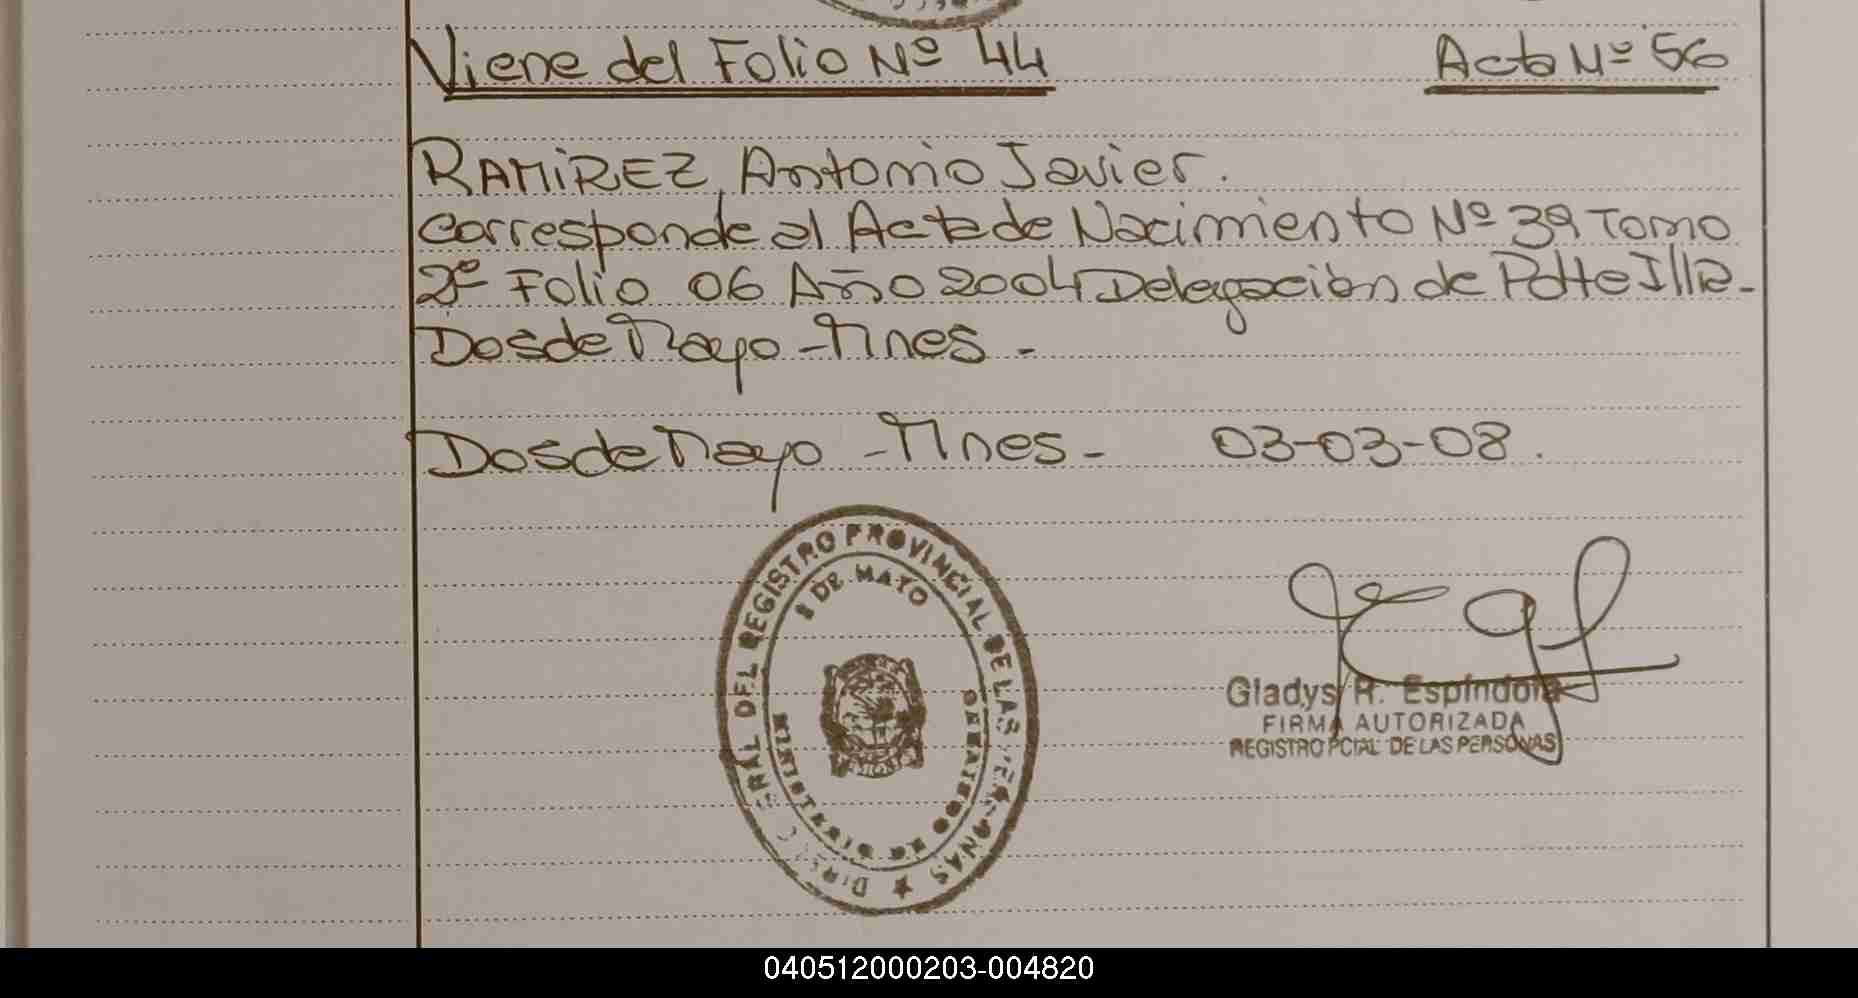 Viene del Folio Nº 44
Acta Nº 56
RAMIREZ, Antonio Javier.
Corresponde al Acta de Nacimiento Nº 39 Tomo
2º Folio 06 Año 2004 Delegación de Pdtte Illia-
Dos de Mayo - Mnes -
Dos de Mayo - Mnes - 03-03-08.
REGISTRO PROVINCIAL DE LAS
DEL
2 DE MAYO
MINISTERIO DE GOBIERNO
Gladys R. Espíndola
FIRMA AUTORIZADA
REGISTRO PCIAL DE LAS PERSONAS
040512000203-004820